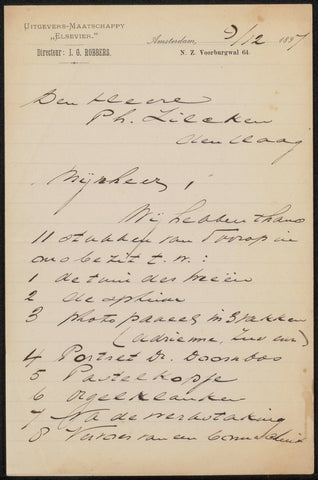 UITGEVERS-MAATSCHAPPY
„ELSEVIER."
Directeur: J. G. ROBBERS.
Amsterdam, 9/12 1897
N. Z. Voorburgwal 64.
Den Heere
Ph. Zilcken
den Haag
Mijnheer,
Wij hebben thans
11 stukken van Toorop in
ons bezit t.w.:
1 de tuin der weeën
2 de sphinx
3 photo paneel in 3 vakken
(Adrienne,
4 Portret Dr. Doornbos
5 Pastelkopje
6 Orgelklanken
7 Na de werkstaking
8 van een